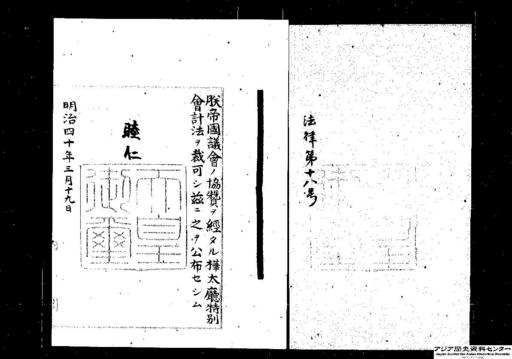 法律第十八号
朕帝國議會ノ協贊ヲ經タル樺太廳特別
會計法ヲ裁可シ茲ニ之ヲ公布セシム
睦仁
天皇
御璽
明治四十年三月十九日
アジア歴史資料センター
Japan Center for Asian Historical Records